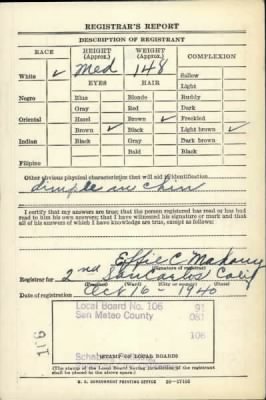 REGISTRAR'S REPORT
DESCRIPTION OF REGISTRANT
RACE HEIGHT (Approx.) WEIGHT (Approx.) COMPLEXION
White ✓ Med 148 Sallow
Light
EYES HAIR
Negro Blue Blonde Ruddy
Gray Red Dark
Oriental Hazel Brown ✓ Freckled
Brown ✓ Black Light brown ✓
Indian Black Gray Dark brown
Bald Black
Filipino
Other obvious physical characteristics that will aid in identification
dimple in chin
I certify that my answers are true; that the person registered has read or has had
read to him his own answers; that I have witnessed his signature or mark and that
all of his answers of which I have knowledge are true, except as follows:
Effie C Mahany
(Signature of registrar)
Registrar for 2nd San Carlos Calif
(Precinct) (Ward) (City or county) (State)
Date of registration Oct 16 - 1940
Local Board No. 106 91
San Mateo County 081
106
106
(STAMP OF LOCAL BOARD)
(The stamp of the Local Board having jurisdiction of the registrant
shall be placed in the above space.)
U. S. GOVERNMENT PRINTING OFFICE 16-17105